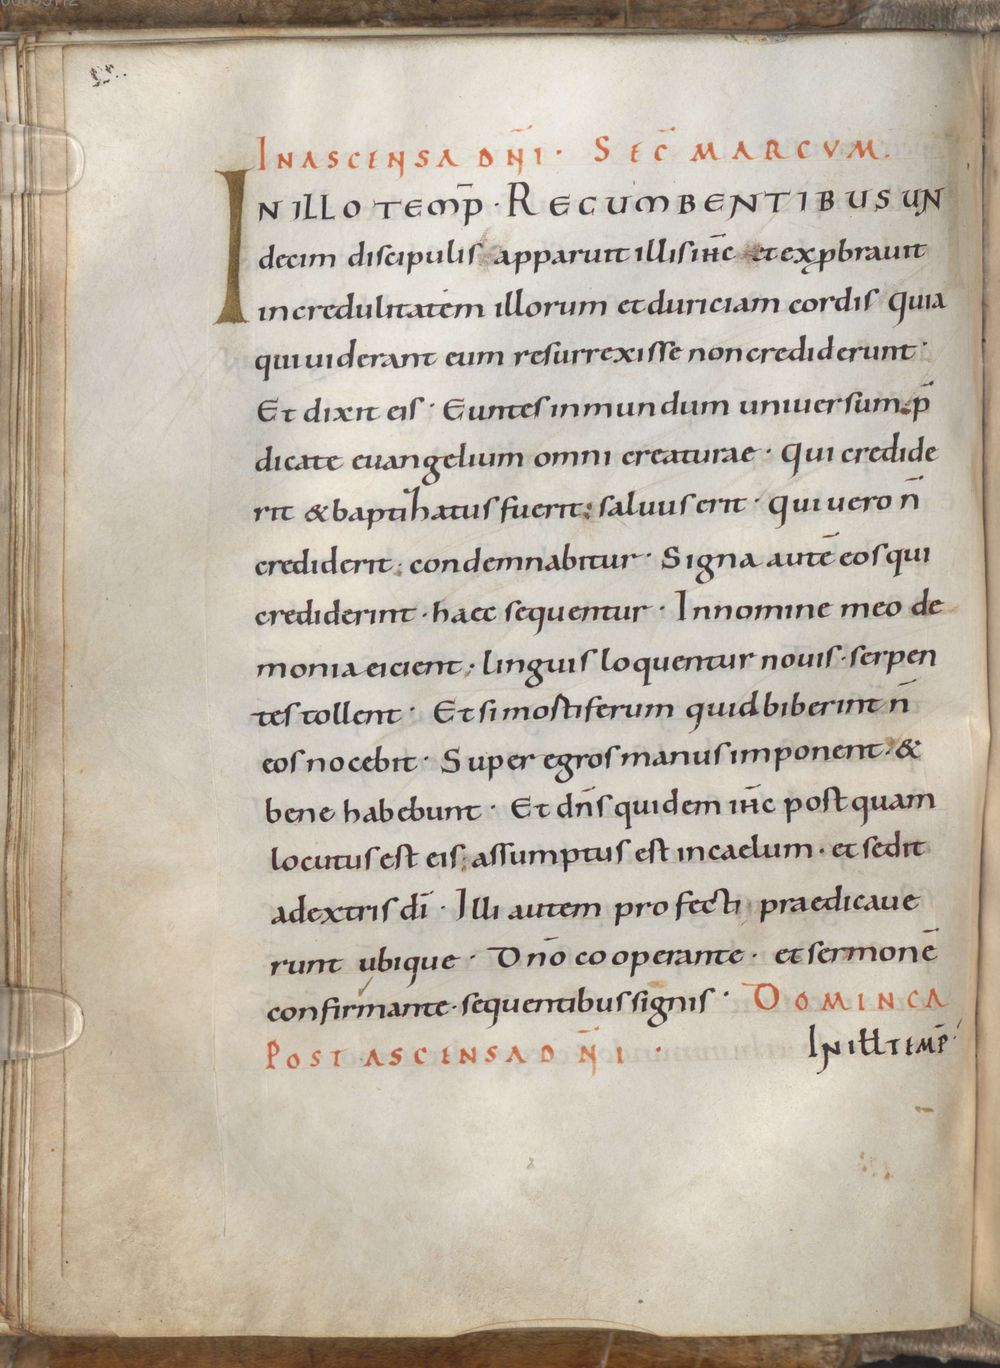 IN ASCENSA DN̄I · SEC̄ MARCVM.
IN ILLO TEMP̄ · RECUMBENTIBUS UN
decim discipulis apparuit illis iħc et exp̱bravit
incredulitatem illorum et duriciam cordis quia
qui uiderant eum resurrexisse non crediderunt ·
Et dixit eis · Euntes in mundum uniuersum p̄
dicate euangelium omni creaturae · Qui credide
rit & baptihatus fuerit; saluus erit · Qui uero n̄
crediderit · condemnabitur · Signa autē eos qui
crediderint · haec sequentur · In nomine meo de
monia eicient · linguis loquentur nouis · serpen
tes tollent · Et si mostiferum quid biberint n̄
eos nocebit · Super egros manus imponent · &
bene habebunt · Et dn̄s quidem iħc postquam
locutus est eis · assumptus est in caelum · et sedit
a dextris dī · Illi autem profecti praedicaue
runt ubique · Dn̄o cooperante · et sermonē
confirmante · sequentibus signis · DOMINCA
POST ASCENSA DN̄I · IN ILŁ TEMP̄ ·